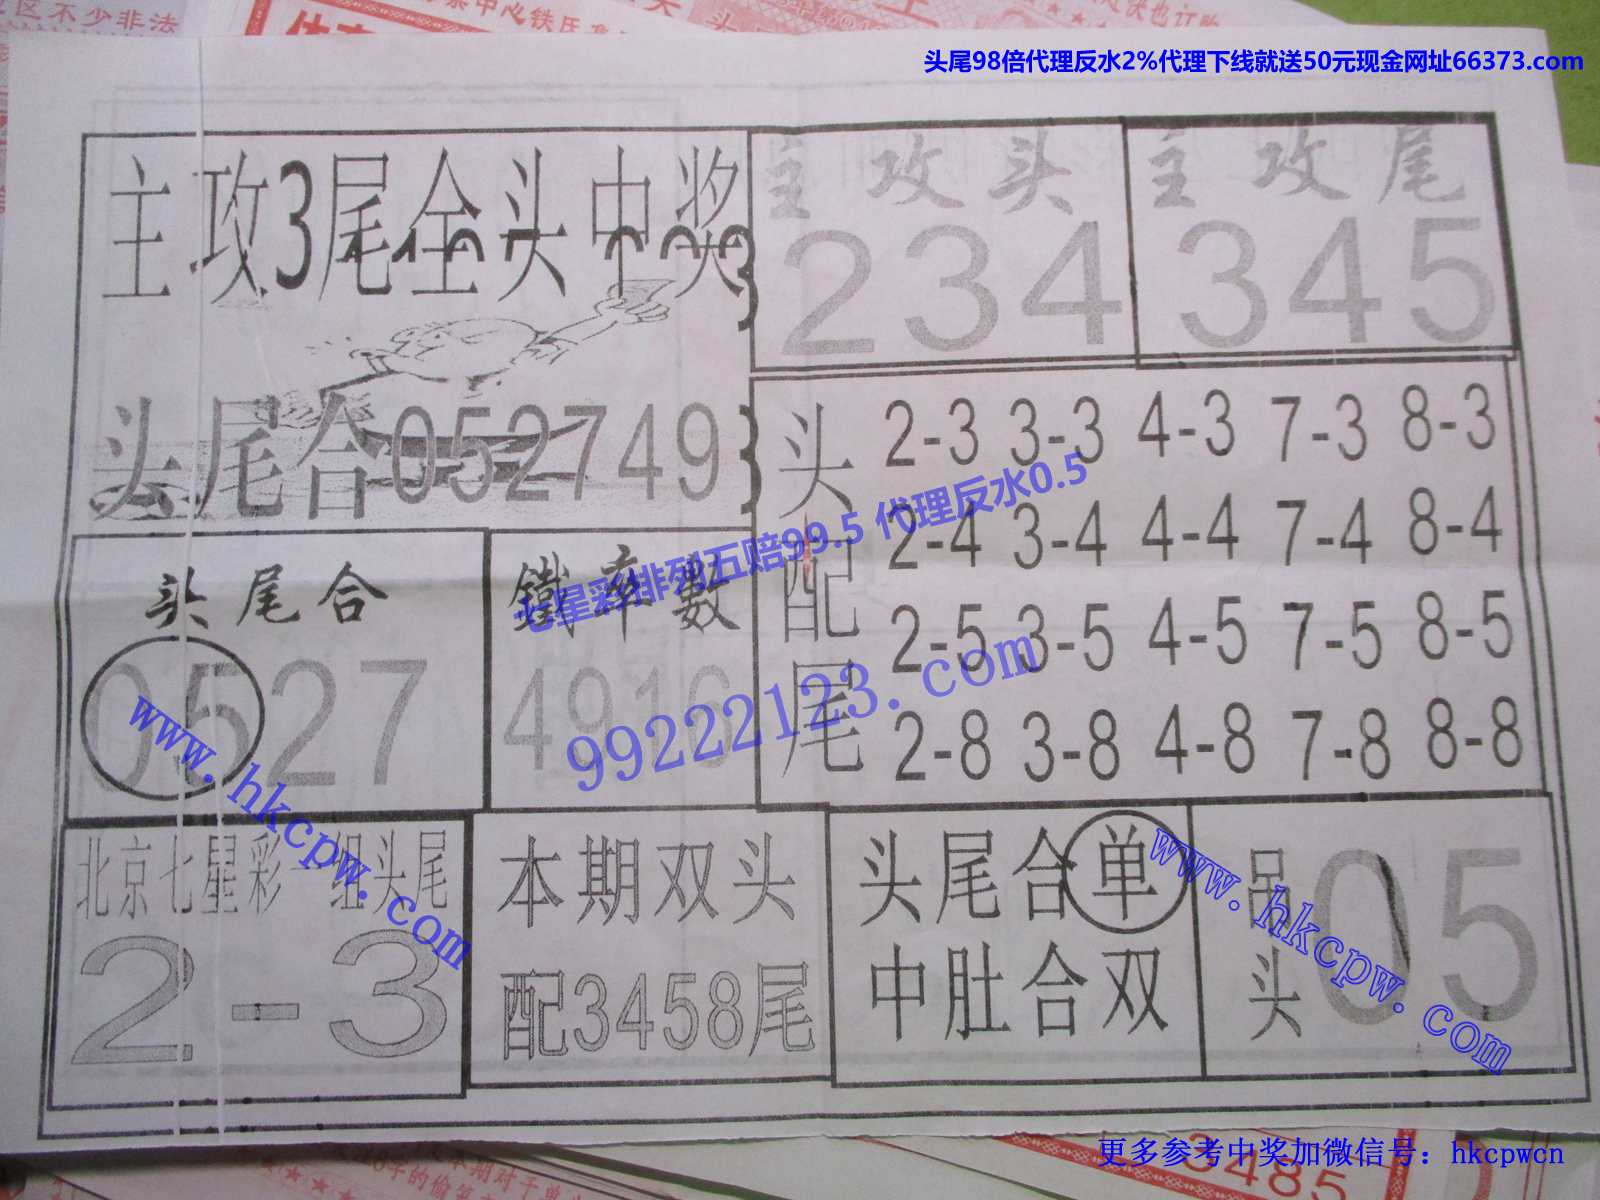 区不少非法
头尾98倍代理反水2%代理下线就送50元现金网址66373.com
主攻3尾全头中奖
头尾合052749
主攻头
234
主攻尾
345
头配尾
2-3 3-3 4-3 7-3 8-3
2-4 3-4 4-4 7-4 8-4
2-5 3-5 4-5 7-5 8-5
2-8 3-8 4-8 7-8 8-8
七星彩排列五赔99.5 代理反水0.5
99222123.com
头尾合
0527
鐵率數
4916
www.hkcpw.com
北京七星彩一组头尾
2-3
本期双头
配3458尾
头尾合单
中肚合双
吊头
05
www.hkcpw.com
更多参考中奖加微信号：hkcpwcn
3485